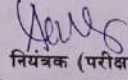 नियंत्रक (परीक्ष